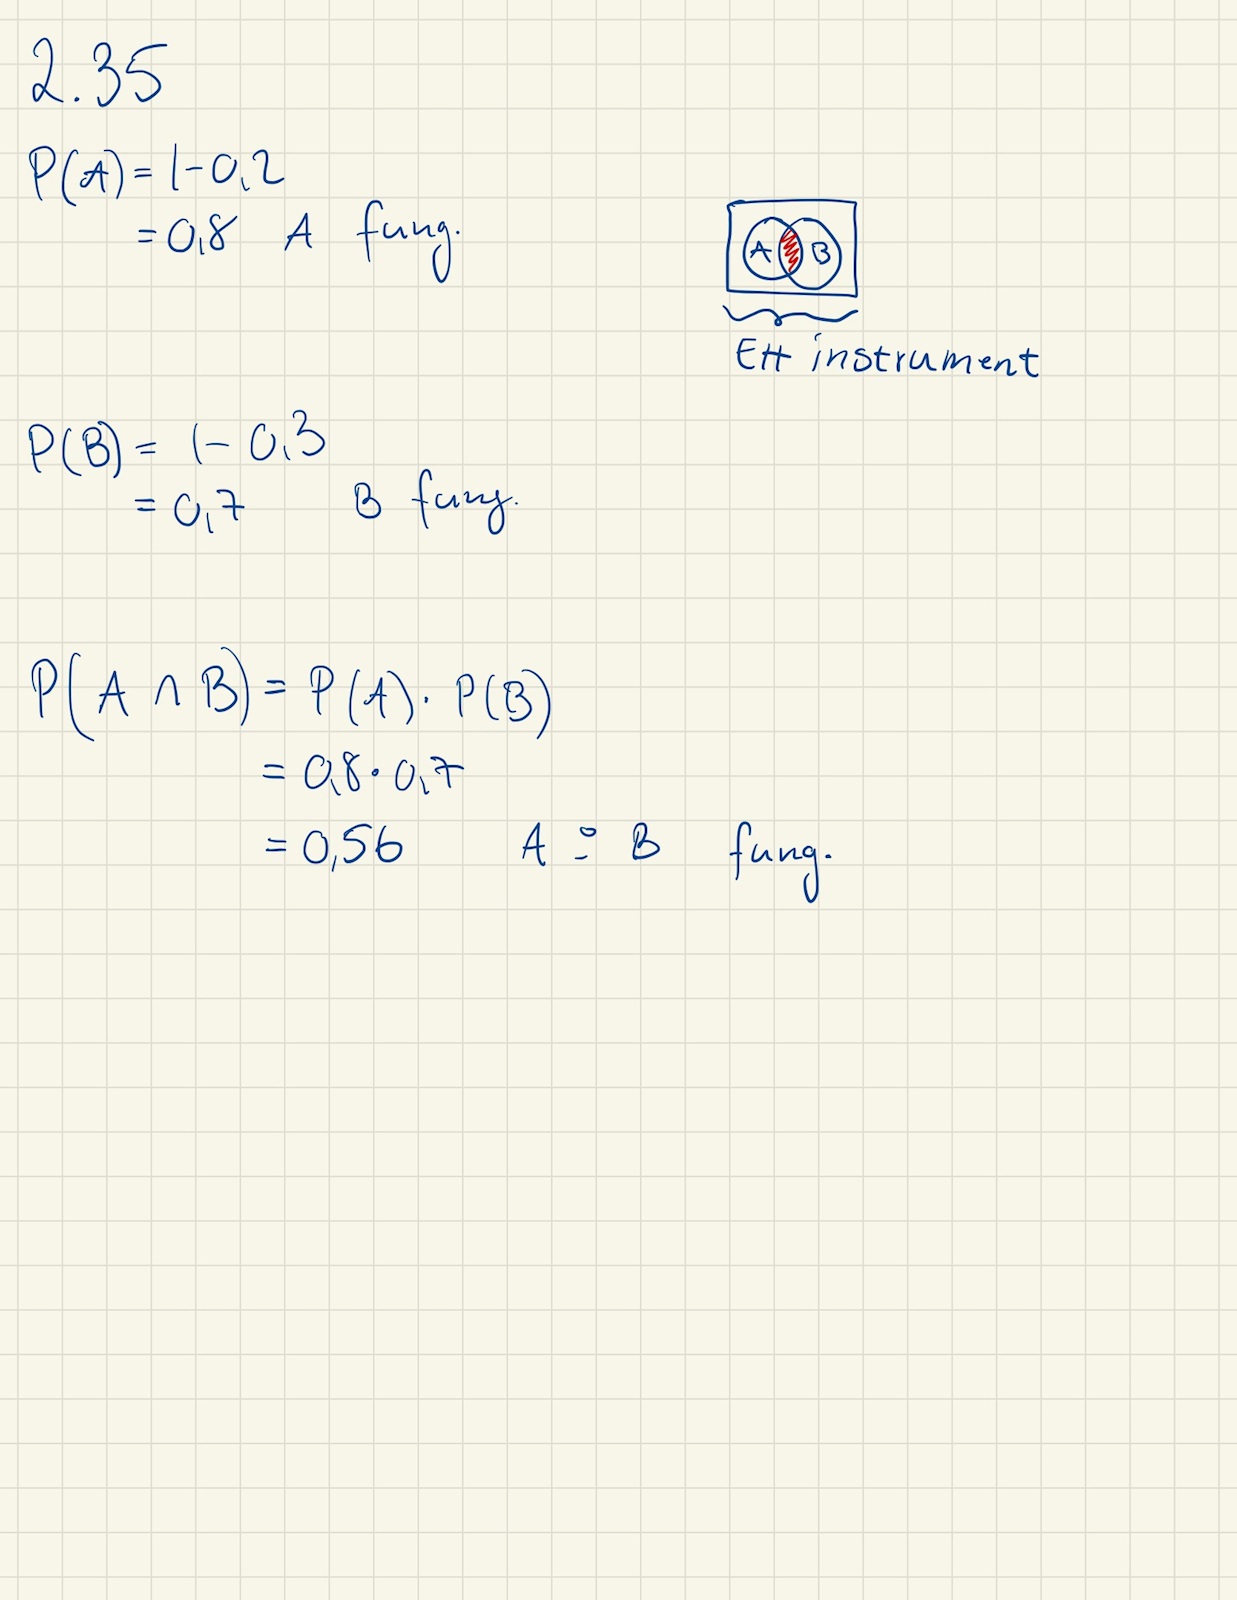 2.35
P(A) = 1-0,2
= 0,8 A fung.
A B
Ett instrument
P(B) = 1-0,3
= 0,7 B fung.
P(A ∩ B) = P(A) · P(B)
= 0,8 · 0,7
= 0,56 A B fung.